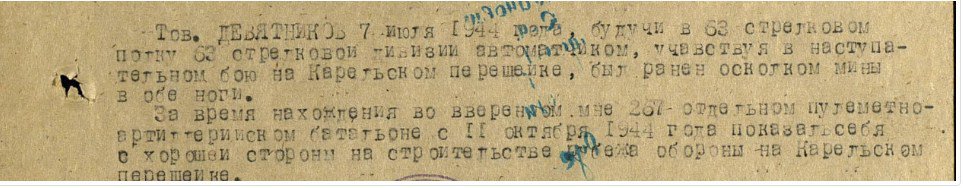 Тов. ДЕВЯТНИКОВ 7 июля 1944 года, будучи в 63 стрелковом
полку 63 стрелковой дивизии автоматчиком, учавствуя в наступа-
тельном бою на Карельском перешейке, был ранен осколком мины
в обе ноги.
За время нахождения во вверенном мне 267 отдельном пулеметно-
артиллерийском батальоне с II октября 1944 года показал себя
с хорошей стороны на строительстве рубежа обороны на Карельском
перешейке.